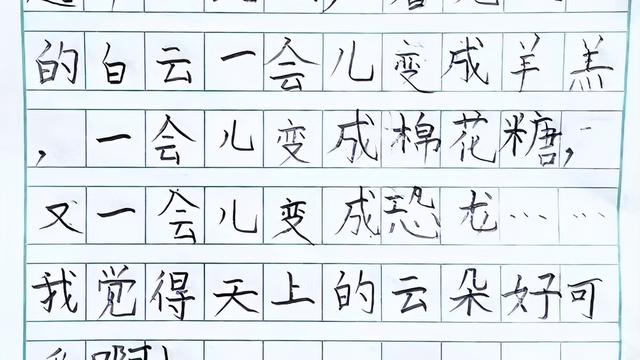 的白云一会儿变成羊羔
，一会儿变成棉花糖，
又一会儿变成恐龙……
我觉得天上的云朵好可
啊！